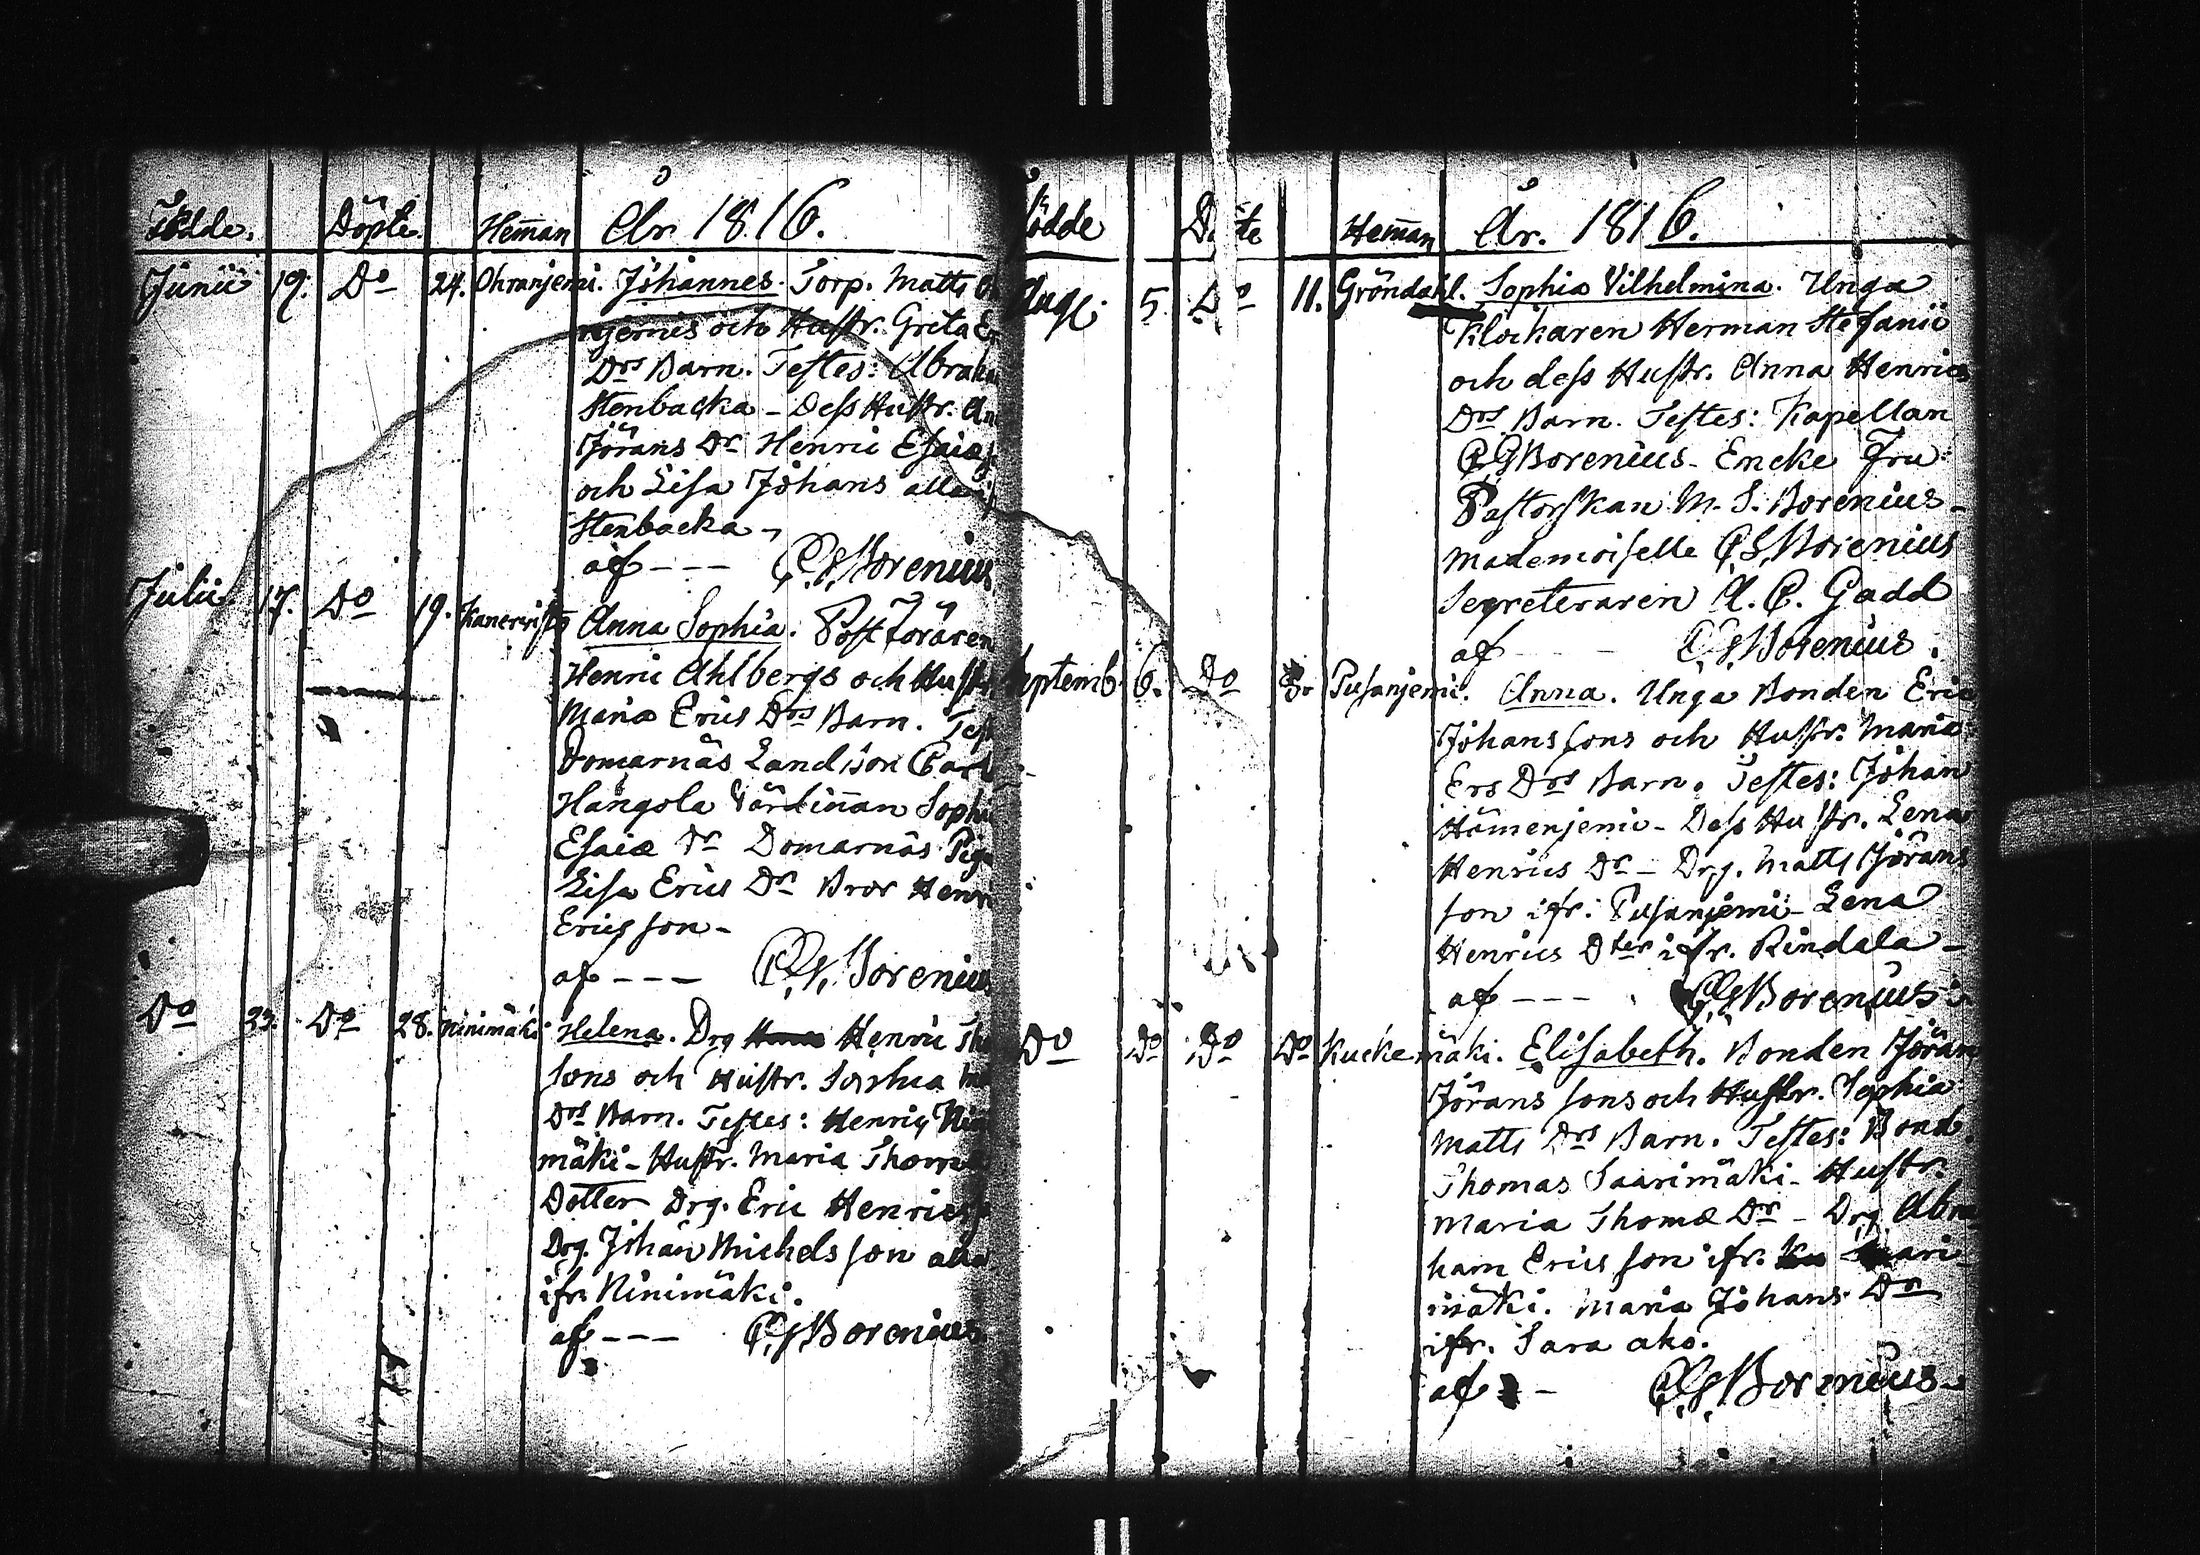 Födde. Döpte. Hem̄an År 1816.
Junii 19. Do 24. Ohranjemi. Johannes. Torp. Matts
njemis och Hustr. Greta
Drs Barn. Testes: Abraha
Stenbacka - Dess Hustr.
Jörans Dr Henric Esaiæ
och Lisa Johans alla
Stenbacka -
af --- C.G. Borenius
Julii 17. Do 19. Kanervisto Anna Sophia. Postföraren
Henric Ahlbergs och Hustr
Maria Erics Drs Barn. Test
Domarnäs Landbon Carl
Hangola Värdin̄an Sophia
Esaiæ Dr Domarnäs Piga
Lisa Erics Dr Bror Henr
Ericsson -
af --- C.G. Borenius
Do 23. Do 28. Ninimäki Helena. Drg Henric Tho
sons och Hustr. Sophia
Drs Barn. Testes: Henric Nini
mäki - Hustr. Maria Thom
Dotter Drg. Eric Henrics
Drg. Johan Michelsson alla
ifr. Ninimäki.
af --- C.G. Borenius
Födde Döpte Hem̄an År. 1816.
Aug. 5 Do 11. Gröndahl. Sophia Vilhelmina. Unga
Klockaren Herman Stefanii
och dess Hustr. Anna Henrics
Drs Barn. Testes: Kapellan
C.G. Borenius - Encke Fru
Pastorskan M. S. Borenius -
Mademoiselle C. S. Borenius
Secreteraren A. C. Gadd
af C.G. Borenius.
Septemb. 6. Do 8. Pusanjemi. Anna. Unga Bonden Eric
Johanssons och Hustr. Maria
Ers Drs Barn. Testes: Johan
Hömenjemi - Dess Hustr. Lena
Henrics Dr - Drg. Matts Jörans
son ifr. Pusanjemi - Lena
Henrics Dter ifr. Rindala -
af --- C.G. Borenius
Do Do Do Do Kuckemäki. Elisabeth. Bonden Jöran
Jörans sons och Hustr. Sophia
Matts Drs Barn. Testes: Bond.
Thomas Saarimäki - Hustr.
Maria Thomæ Dr - Drg Abra
ham Ericsson ifr. ari
mäki. Maria Johans Dr
ifr. Sara aho.
af - C.G. Borenius